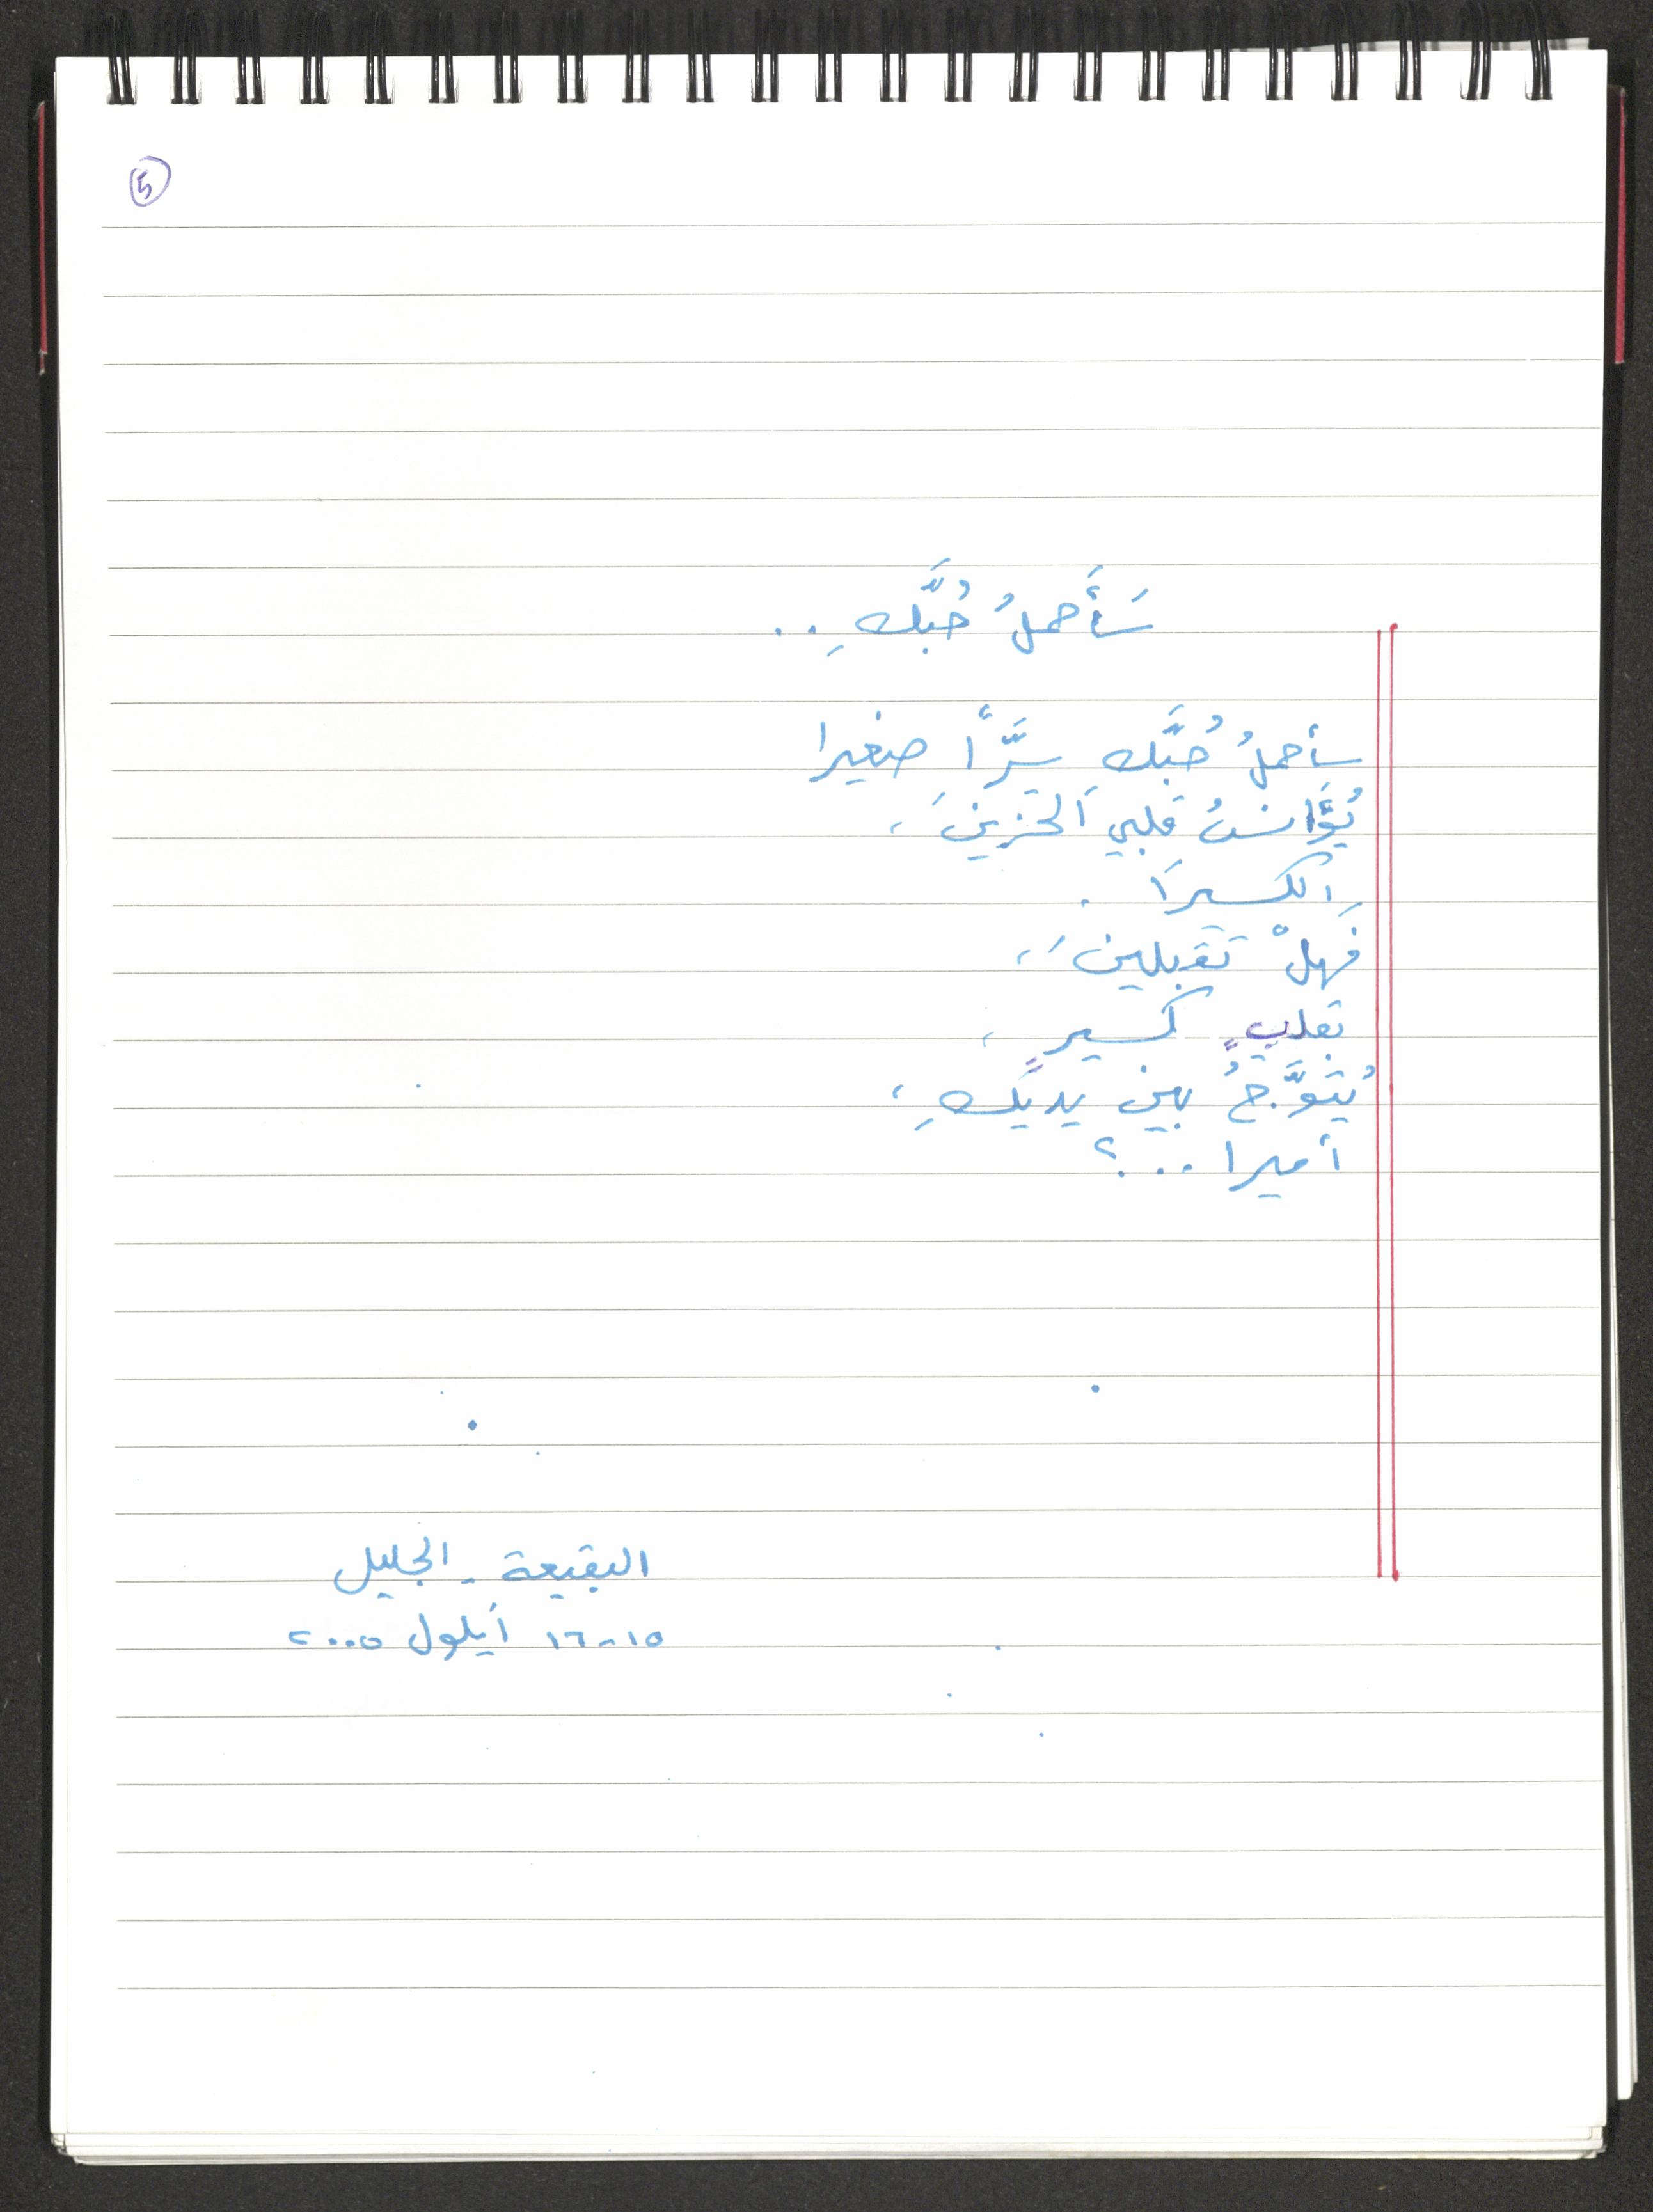 5
سَأَحملُ حُبَّكِ..
سأحملُ حُبَّكِ سرَّاً صغيرا
يُؤَانسُ قلبي الحَزينَ،
الكسيرَا.
فَهلْ تقبلينَ،
بقلبٍ كسيرٍ،
يُتَوَّجُ بين يديكِ،
أميرا...؟
البقيعة - الجليل
١٥-١٦ أيلول ٢٠٠٥